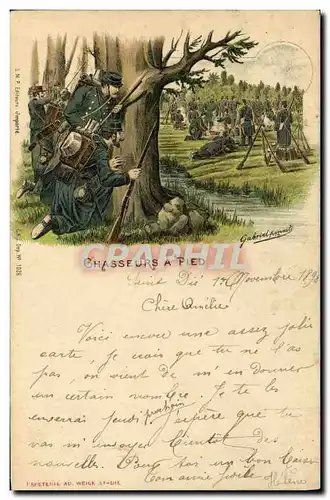 I.M.P. Editeurs. Déposé.
Gabriel
CHASSEURS A PIED
Cartes-
Saint Dié 17 Novembre 189
Chère Amélie
Voici encore une assez jolie
carte, je crois que tu ne l'as
pas, on vient de m'en donner
un certain nombre. Je te les
enverrai Jeudi prochain j'espère que tu
vas m'envoyer bientôt des
nouvelles. Pour toi un bon baiser
Ton amie
Hélène
PAPETERIE AD. WEICK ST-DIÉ